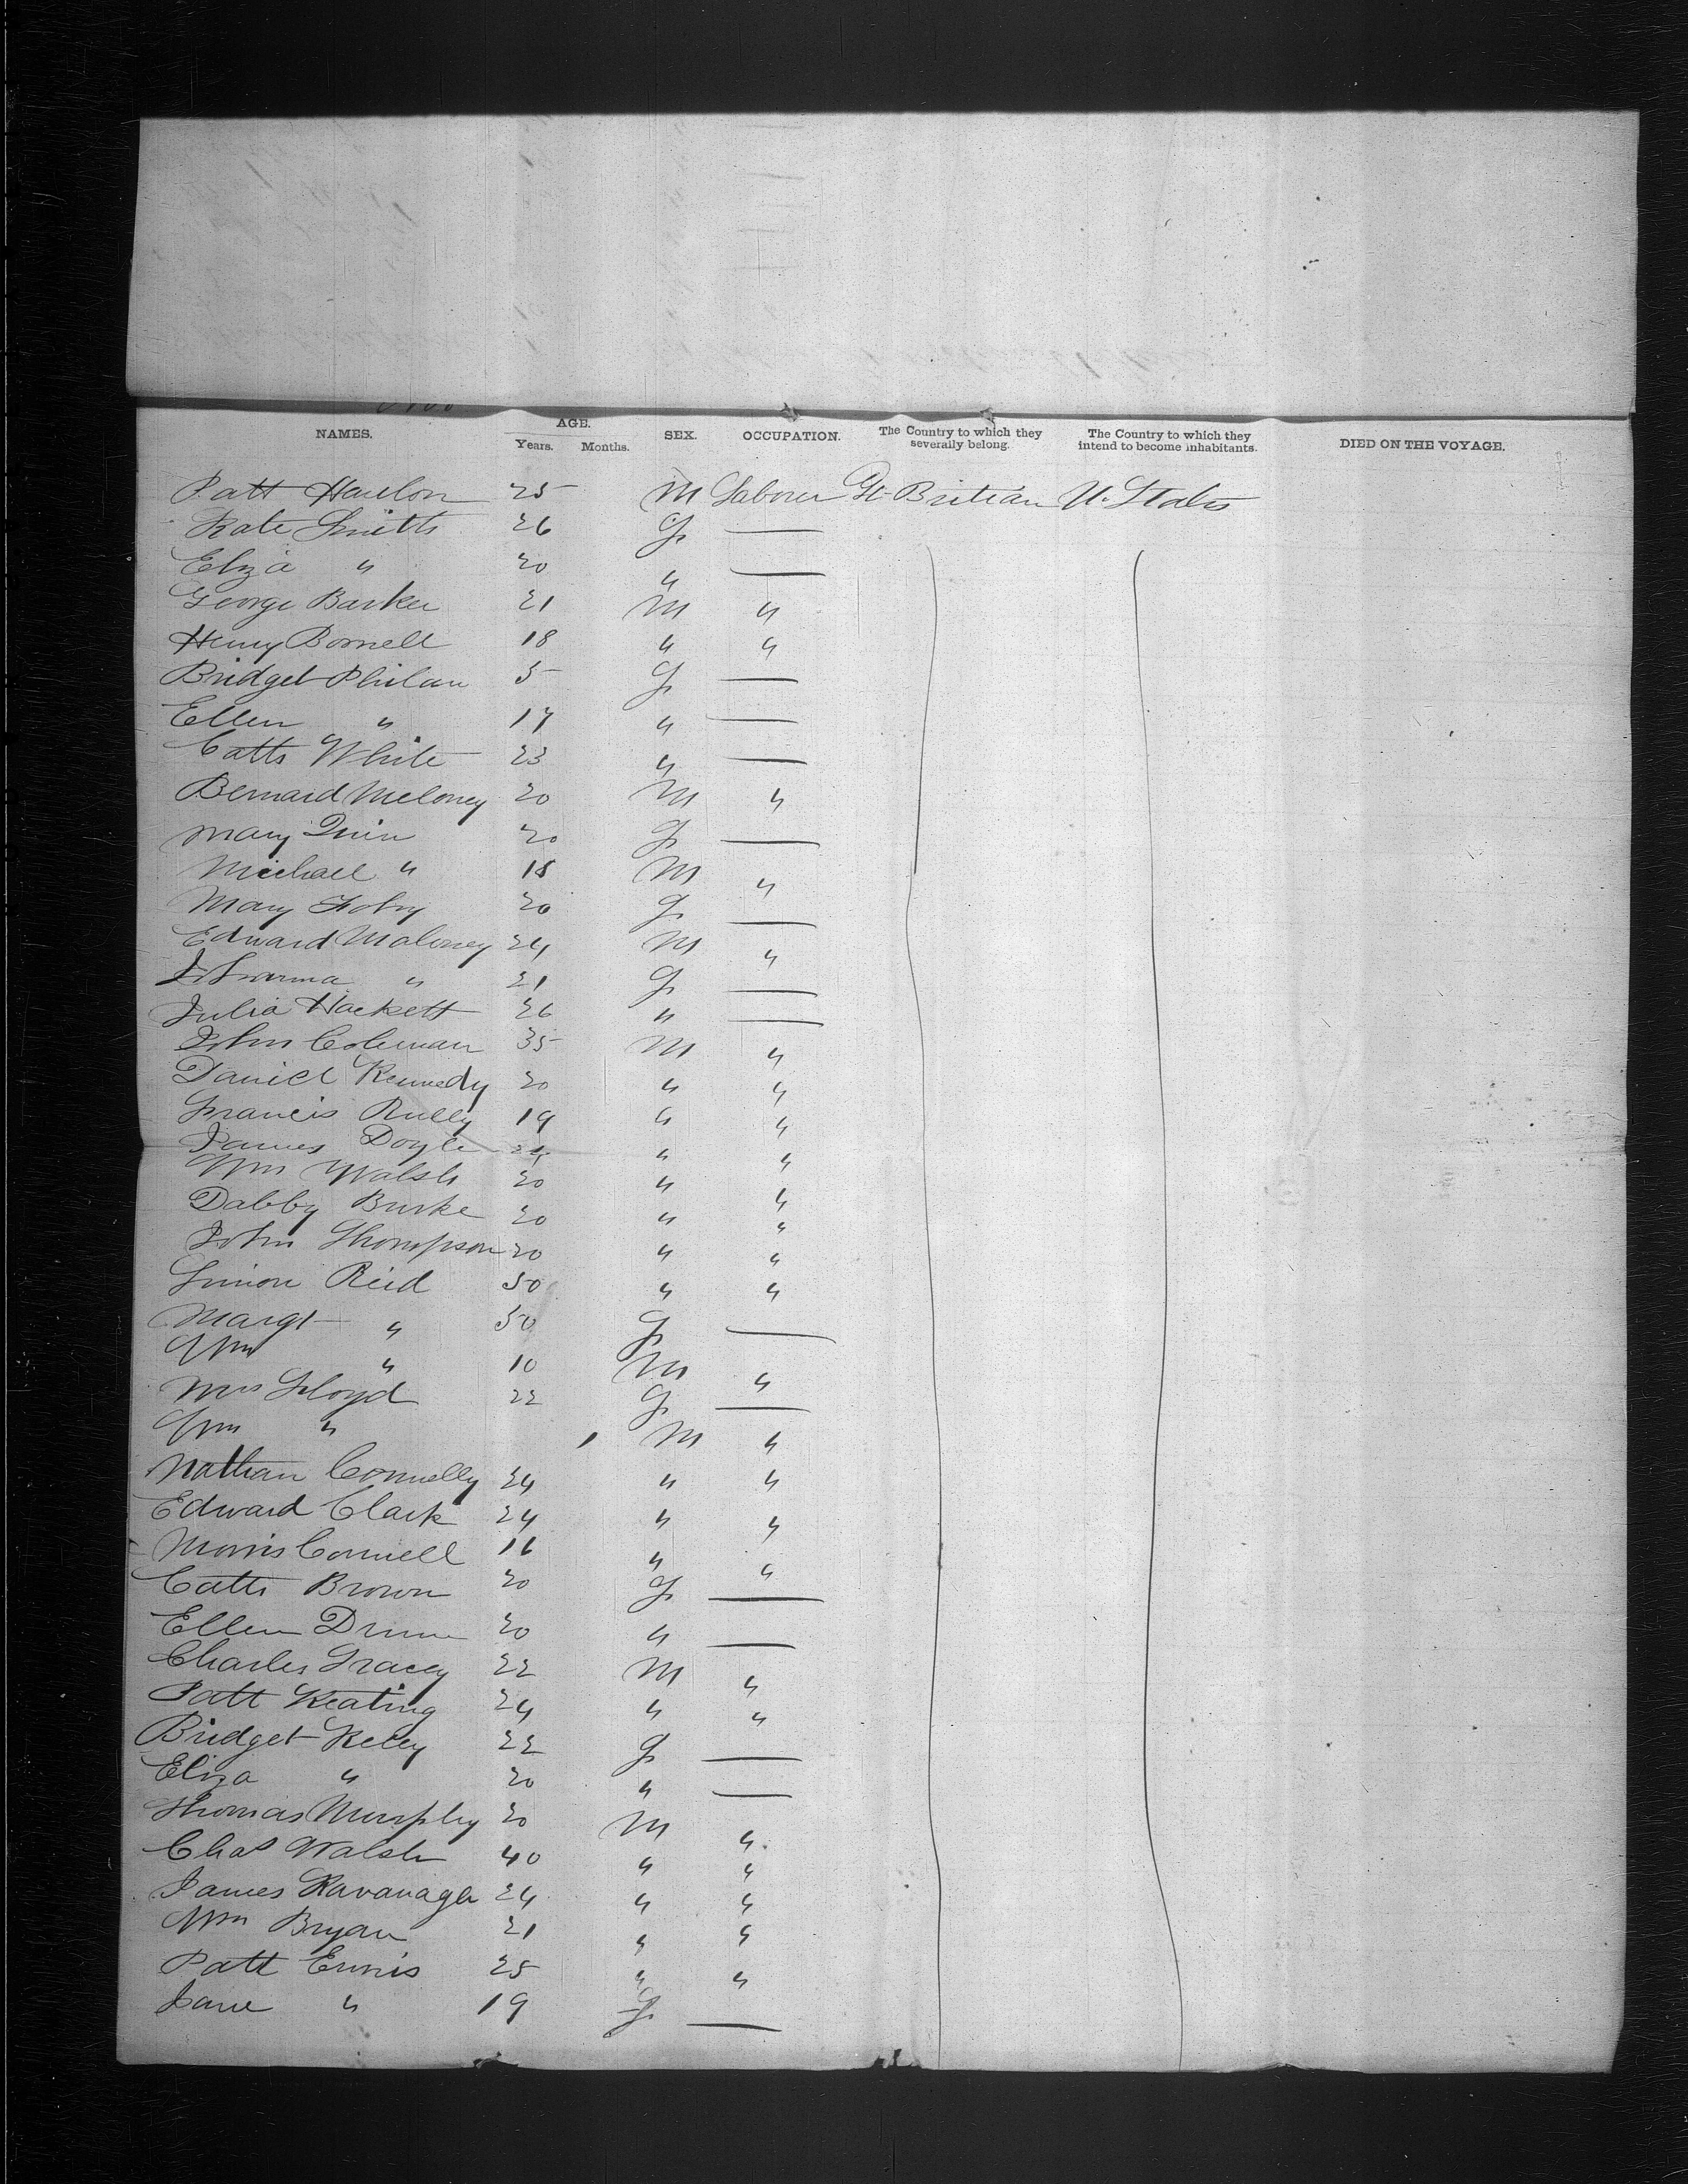 NAMES. AGE. Years. Months. SEX. OCCUPATION. The Country to which they severally belong. The Country to which they intend to become inhabitants. DIED ON THE VOYAGE.
Patt Hanlon 25 M Labourer Gt Britian U. States
Kate Smith 26 F —
Eliza " 20 " —
George Barker 21 M "
Henry Bornell 18 " "
Bridget Philan 5 F —
Ellen " 17 " —
Cath White 23 " —
Bernard Meloney 20 M "
Mary Quin 20 F —
Michael " 18 M "
Mary Foby 20 F —
Edward Maloney 24 M "
Johanna " 21 F —
Julia Hackett 26 " —
John Coleman 35 M "
Daniel Kennedy 20 " "
Francis Rully 19 " "
James Doyle 24 " "
Wm Walsh 20 " "
Dabby Burke 20 " "
John Thompson 20 " "
Simon Reid 50 " "
Margt " 50 F —
Wm " 10 M "
Mrs Floyd 22 F —
Wm " 1 M "
Nathan Connelly 24 " "
Edward Clark 24 " "
Morris Connell 16 " "
Cath Brown 20 F —
Ellen Drum 20 " —
Charles Tracey 22 M "
Patt Keating 24 " "
Bridget Keley 22 F —
Eliza " 20 " —
Thomas Murphy 20 M "
Chas Walsh 40 " "
James Kavanagh 24 " "
Wm Bryan 21 " "
Patt Ennis 25 " "
Jane " 19 F —